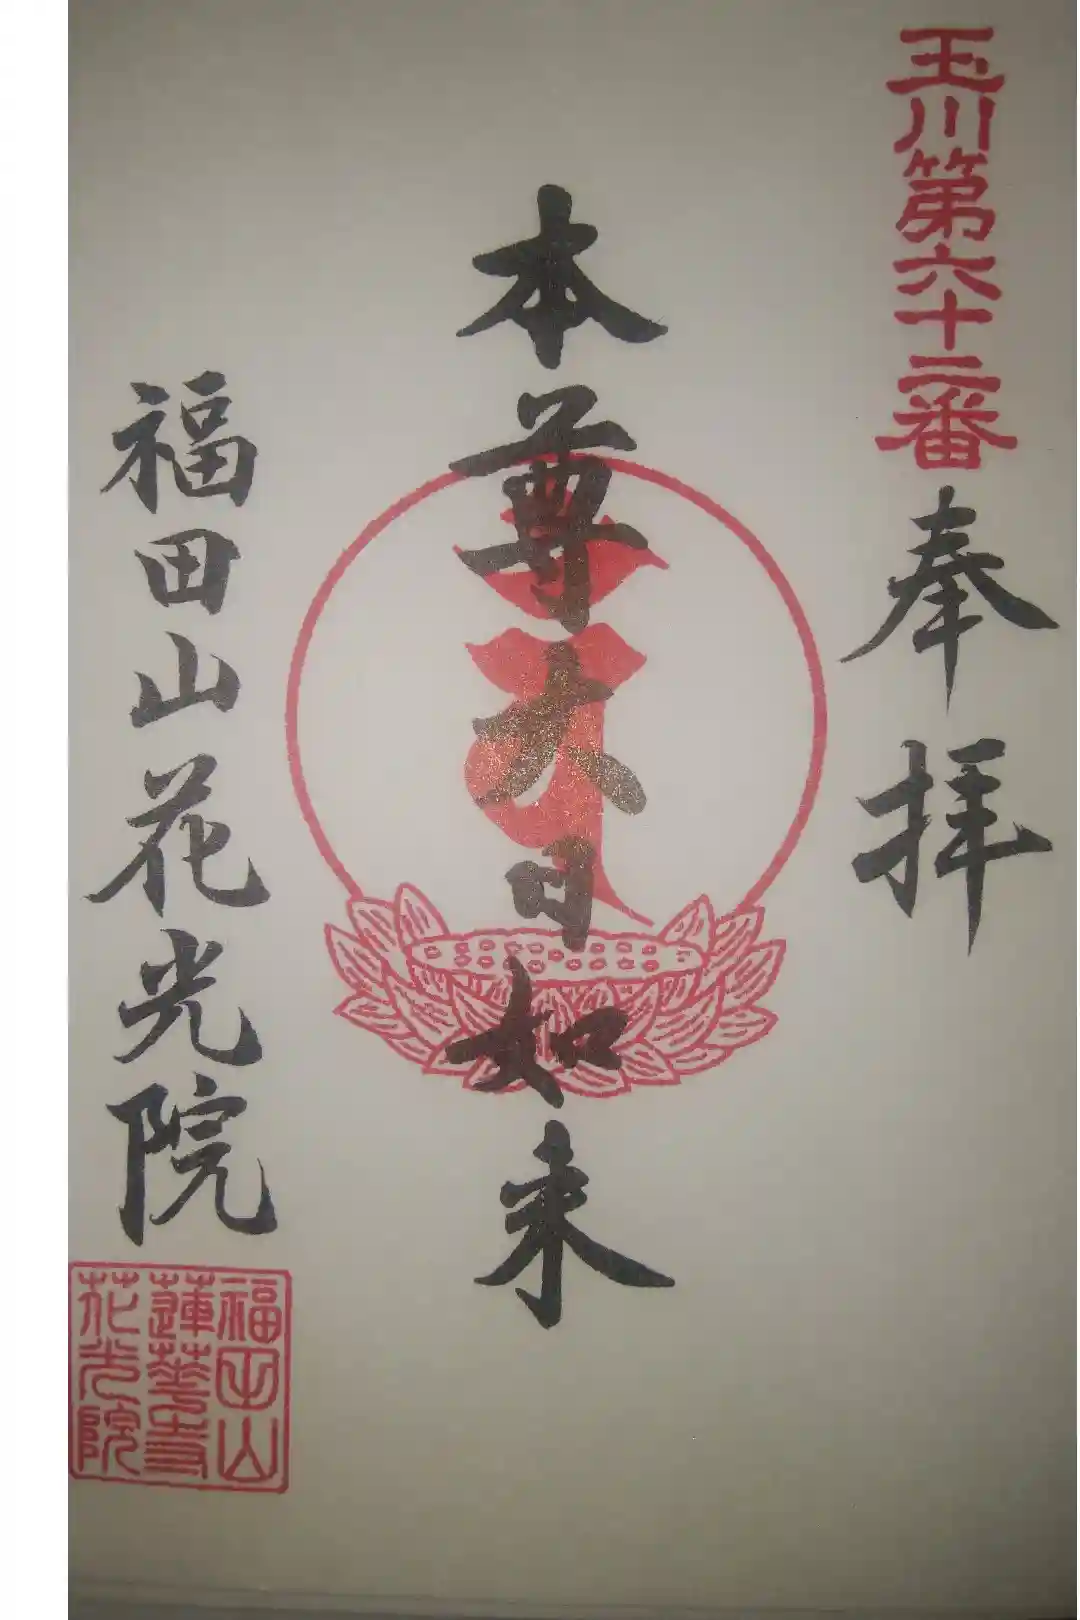 玉川第六十二番
奉拝
本尊大日如来
福田山花光院
福田山
蓮華寺
花光院